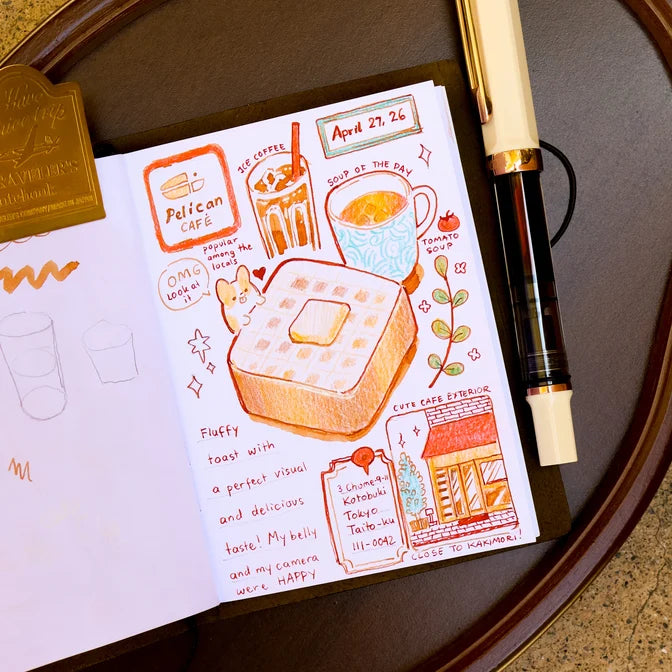 Have
a nice trip
TRAVELER'S
notebook
TRAVELER'S COMPANY MADE IN JAPAN
Pelican
CAFÉ
ICE COFFEE
April 27, 26
SOUP OF THE DAY
popular
among the
locals
OMG
Look at
it
TOMATO
SOUP
Fluffy
toast with
a perfect visual
and delicious
taste! My belly
and my camera
were HAPPY
3 Chome-9-11
Kotobuki
Tokyo
Taito-ku
111-0042
CUTE CAFE EXTERIOR
CLOSE TO KAKIMORI!